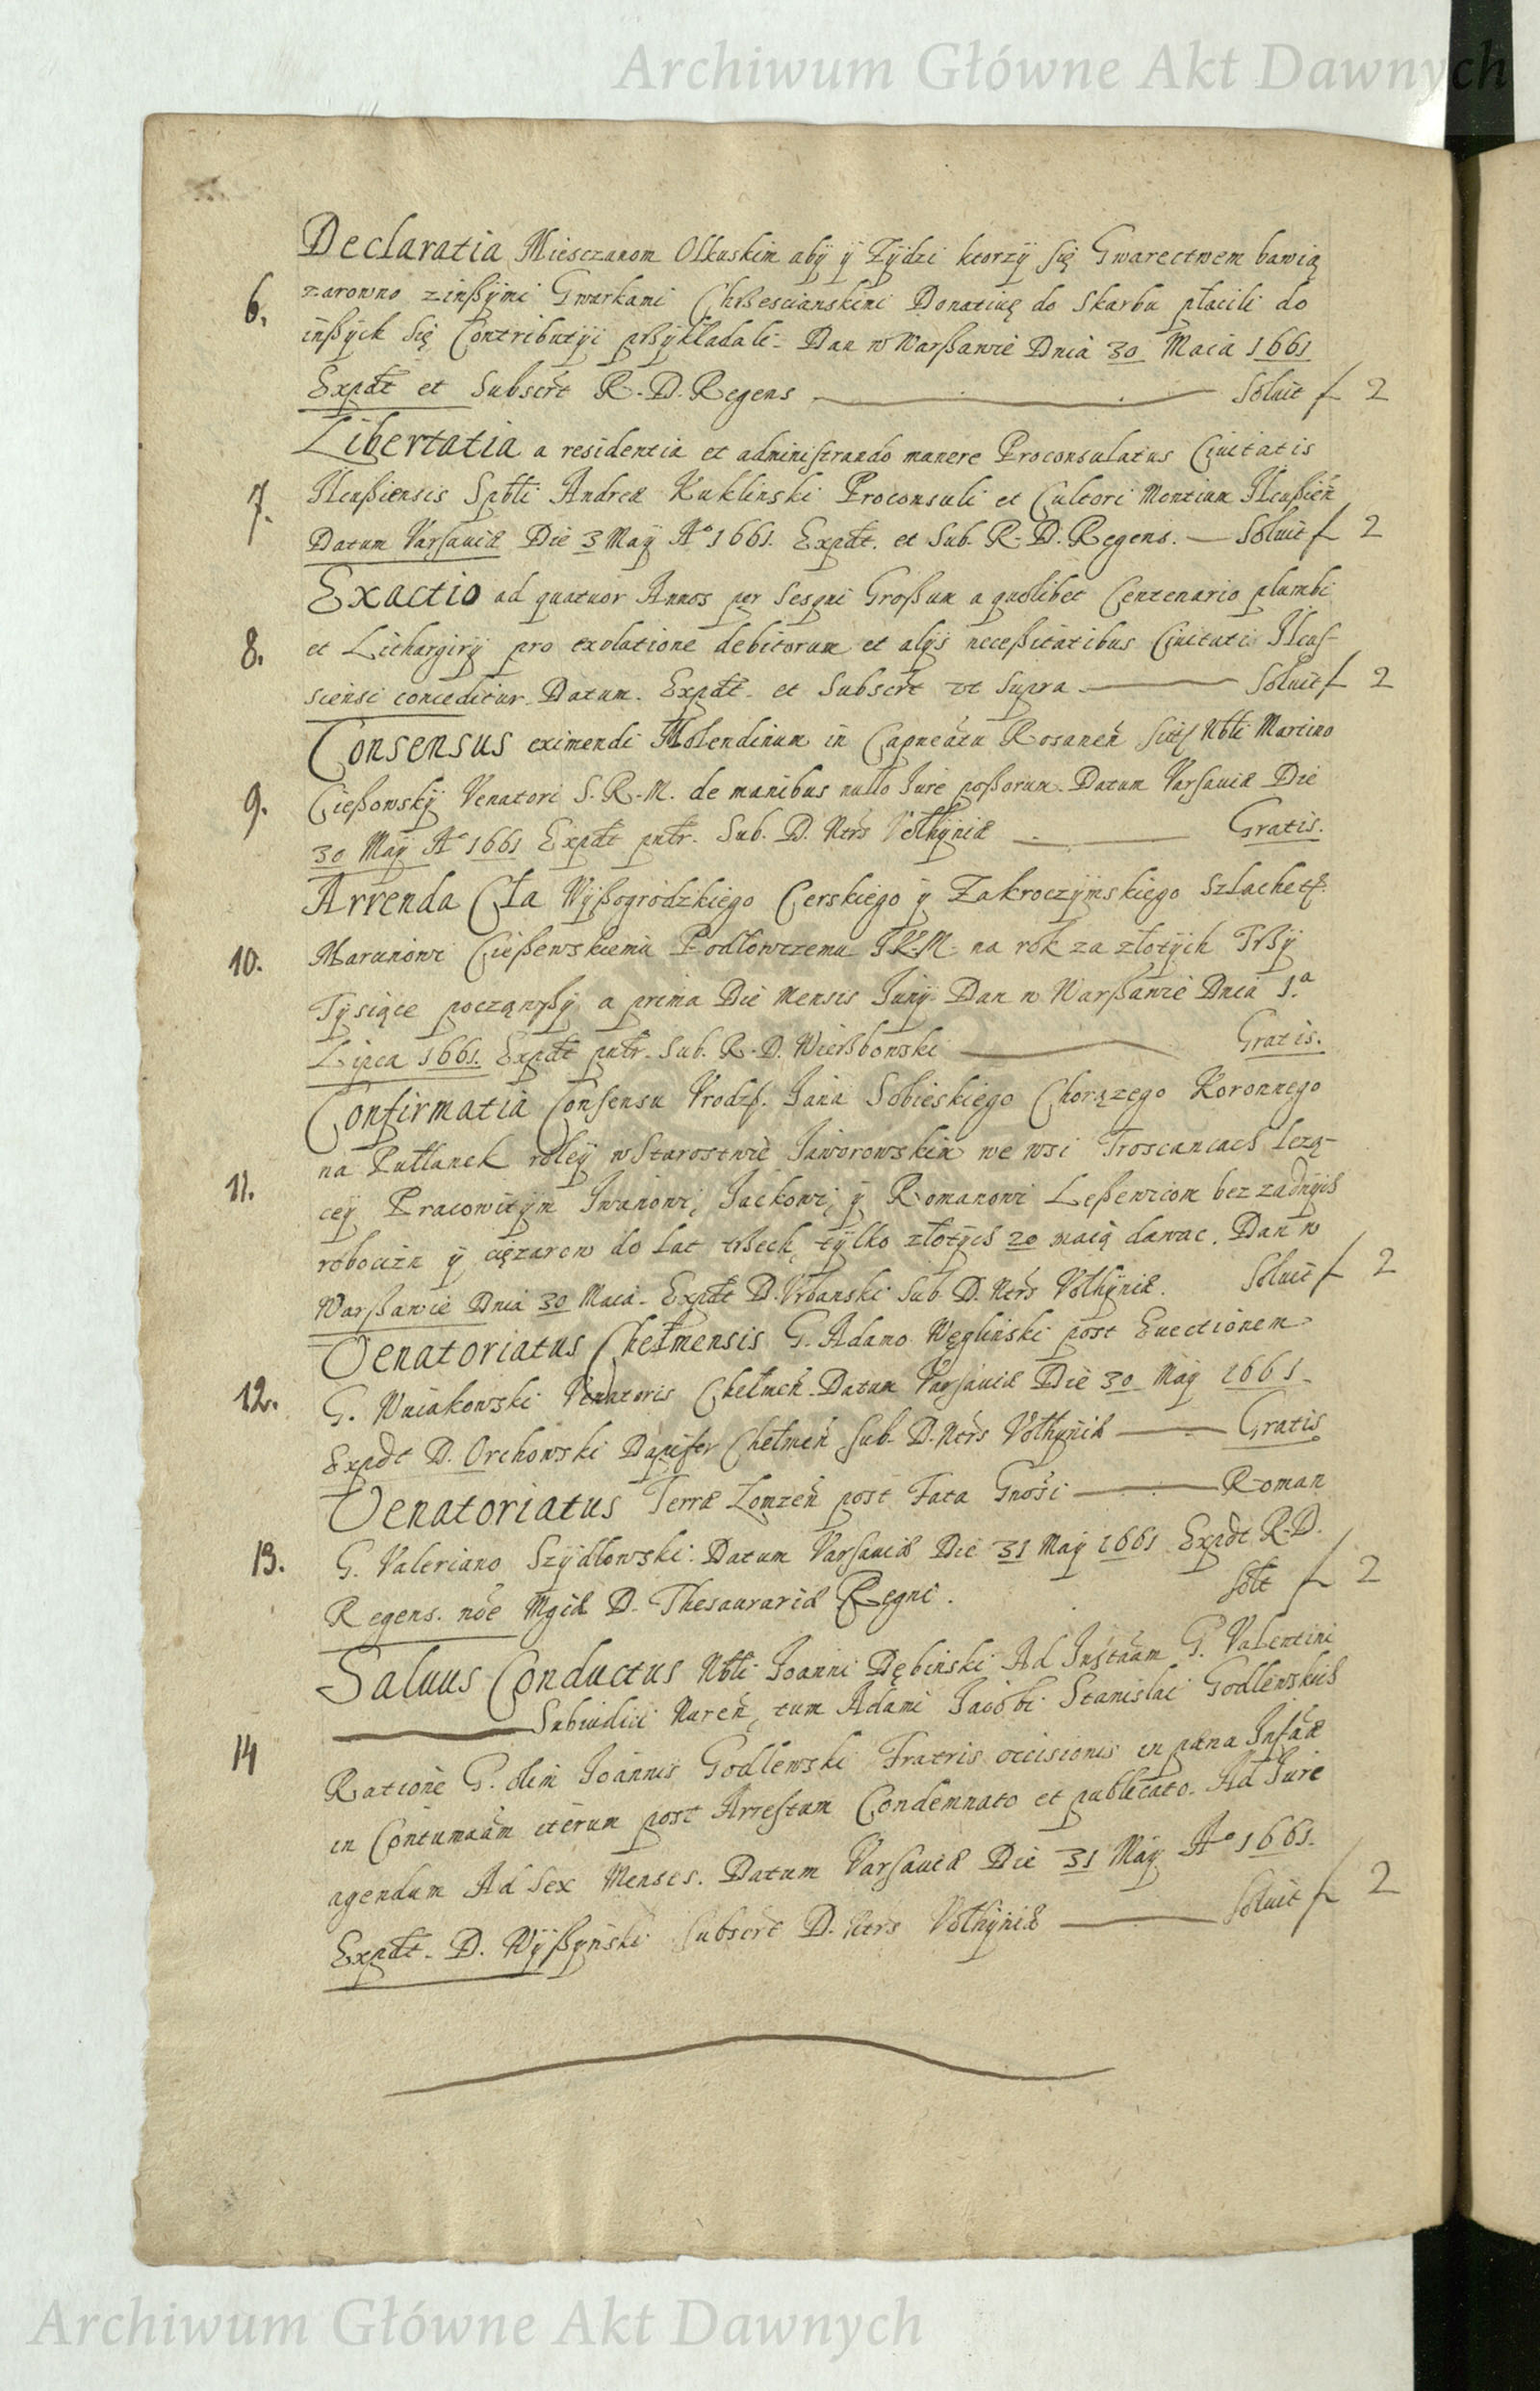 Archiwum Główne Akt Dawnych
Declaratia Miesczanom Olkuskim aby ÿ Zÿdzi ktorzÿ się Gwarectwem bawią
6. zarowno z inßÿmi Gwarkami Chrßescianskimi Donatiuę do Skarbu płacili do
inßÿch się Contributÿi prßÿkładali. Dan w Warßawie Dnia 30 Maia 1661
Expdt et Subscrt R. D. Regens — Soluit f 2
Libertatia a residentia et administrando munere Proconsulatus Ciuitatis
7. Ilcußiensis Spbli Andreæ Kuklinski Proconsuli et Cultori Montium Ilcußień
Datum Varsauiæ Die 3 Maÿ A° 1661. Expdt. et Sub. R. D. Regens. — Soluit f 2
Exactio ad quatuor Annos per Sesqui Großum a quolibet Centenario plumbi
8. et Lithargirÿ pro exolutione debitorum et alÿs neceßitatibus Ciuitati Ilcus-
siensi conceditur. Datum. Expdt. et Subscrt vt Supra — Soluit f 2
Consensus eximendi Molendinum in Capneatu Rosaneń Nbli Martino
9. Cießowskÿ Venatori S. R. M. de manibus nullo Jure poßorum. Datum Varsauiæ Die
30 Maÿ A° 1661 Expdt putr. Sub. D. Ntrs Volhÿniæ — Gratis.
Arrenda Cła Wÿßogrodzkiego Cerskiego ÿ Zakroczÿmskiego Szlachet.
10. Marcinowi Cießewskiemu Podłowczemu J K. M. na rok za złotÿch Trßÿ
Tÿsiące począwßÿ a prima Die Mensis Junÿ. Dan w Warßawie Dnia 1.a
Lipca 1661. Expdt putr. Sub. R. D. Wierßbowski — Gratis.
Confirmatia Consensu Vrodz. Jana Sobieskiego Chorązego Koronnego
na Pułłanek roleÿ w Starostwie Jaworowskim we wsi Troscancach lezą-
11. ceÿ Pracowitÿm Iwanowi, Jackowi, ÿ Romanowi Leßewiom bez zadnÿch
robocizn ÿ cięzarow do lat trßech, tÿlko złotÿch 20 maią dawac. Dan w
Warßawie Dnia 30 Maia. Expdt D. Vrbanski Sub. D. Ntrs Volhÿniæ. Soluit f 2
Venatoriatus Chełmensis G. Adamo Węglinski post Euectionem
12. G. Uniakowski Venatoris Chełmeń. Datum Varsauiæ Die 30 Maÿ 1661.
Expdt D. Orchowski Dapifer Chełmeń Sub. D. Ntrs Volhÿniæ — Gratis
Venatoriatus Terræ Łomzeń post Fata Gnosi — Roman
13. G. Valeriano Szÿdłowski. Datum Varsauiæ Die 31 Maÿ 1661 Expdt R. D.
Regens. noe Mgiæ D. Thesaurariæ Regni. Solt f 2
Saluus Conductus Nbli Joanni Dębinski Ad Instaam G. Valentini
— Subiudici Nureń, tum Adami Jacobi Stanislai Godlewskich
14 Ratione G. olim Joannis Godlewski Fratris occisionis in pæna Infaæ
in Contumaam iterum post Arrestum Condemnato et publicato. Ad Jure
agendum Ad Sex Menses. Datum Varsauiæ Die 31 Maÿ A° 1661.
Expdt. D. Wÿßÿnski Subscrt D. Ntrs Volhÿniæ — Soluit f 2
Archiwum Główne Akt Dawnych